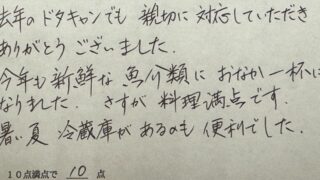 去年のドタキャンでも 親切に対応していただき
ありがとうございました.
今年も新鮮な魚介類におなか一杯に
なりました. さすが料理満点です.
暑い夏 冷蔵庫があるのも便利でした.
10点満点で 10 点